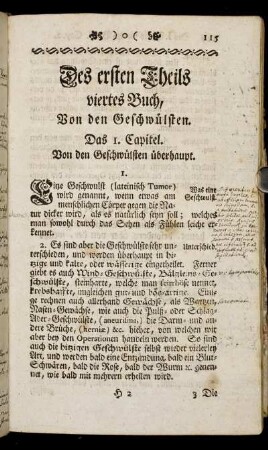 )o( 115
Des ersten Theils
viertes Buch,
Von den Geschwülsten.
Das 1. Capitel.
Von den Geschwülsten überhaupt.
1.
Eine Geschwulst (lateinisch Tumor) Was eine
wird genannt, wenn etwas am Geschwulst.
menschlichen Cörper gegen die Na-
tur dicker wird, als es natürlich seyn soll; welches
man sowohl durch das Sehen als Fühlen leicht er-
kennet.
2. Es sind aber die Geschwülste sehr un- Unterschied.
terschieden, und werden überhaupt in hi-
tzige und kalte, oder wässerige eingetheilet. Ferner
giebt es auch Wind-Geschwülste, Bälgleins-Ge-
schwülste, steinharte, welche man scirrhose nennet,
krebshaffte, ingleichen gut- und bösartige. Eini-
ge rechnen auch allerhand Gewächse, als Wartzen,
Nasen-Gewächse, wie auch die Pulß- oder Schlag-
Ader-Geschwülste, (aneurisma), die Darm- und an-
dere Brüche, (herniæ) &c. hieher, von welchen wir
aber bey den Operationen handeln werden. So sind
auch die hitzigen Geschwülste selbst wieder vielerley
Art, und werden bald eine Entzündung, bald ein Blut-
Schwären, bald die Rose, bald der Wurm &c. genen-
net, wie bald mit mehrern erhellen wird.
H 2 3 Die